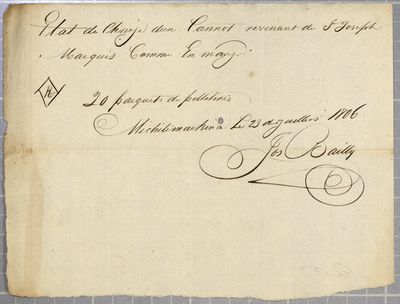 Etat de Charge d'un Cannot revenant de St Joseph
Marquis Comme En marge.
20 paquets de pelleteris
Michilimackina Le 23 de Juillet 1806
Jos Bailly